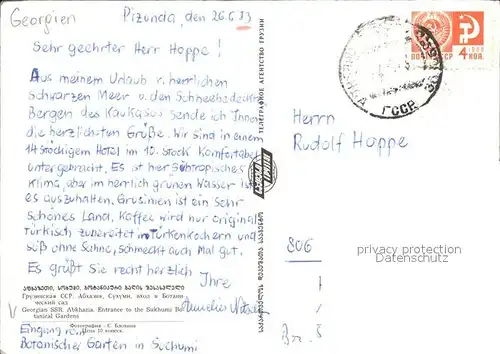 Georgien
Pizunda, den 26.6.83
Sehr geehrter Herr Hoppe!
Aus meinem Urlaub v. herrlichen
Schwarzen Meer u. den Schneebedeckten
Bergen des Kaukasus sende ich Ihnen
die herzlichsten Grüße. Wir sind in einem
14 stöckigem Hotel im 10. Stock komfortabel
untergebracht. Es ist hier subtropisches
Klima, aber im herrlich grünen Wasser ist
es auszuhalten. Grusinien ist ein sehr
schönes Land. Kaffee wird nur original
türkisch zubereitet in Türkenkochern und
süß ohne Sahne, schmeckt auch mal gut.
Es grüßt Sie recht herzlich
Ihre
აფხაზეთი, სოხუმი, ბოტანიკური ბაღის შესასვლელი
Грузинская ССР. Абхазия, Сухуми, вход в Ботани-
ческий сад
Georgian SSR. Abkhazia. Entrance to the Sukhumi Bo-
tanical Gardens
Фотография
Цена 10 копеек
Eingang
Botanischer Garten in Suchumi
ТЕЛЕГРАФНОЕ АГЕНТСТВО ГРУЗИИ
ПОЧТА СССР
4 КОП.
ГССР
Herrn
Rudolf Hoppe
806
privacy protection
Datenschutz